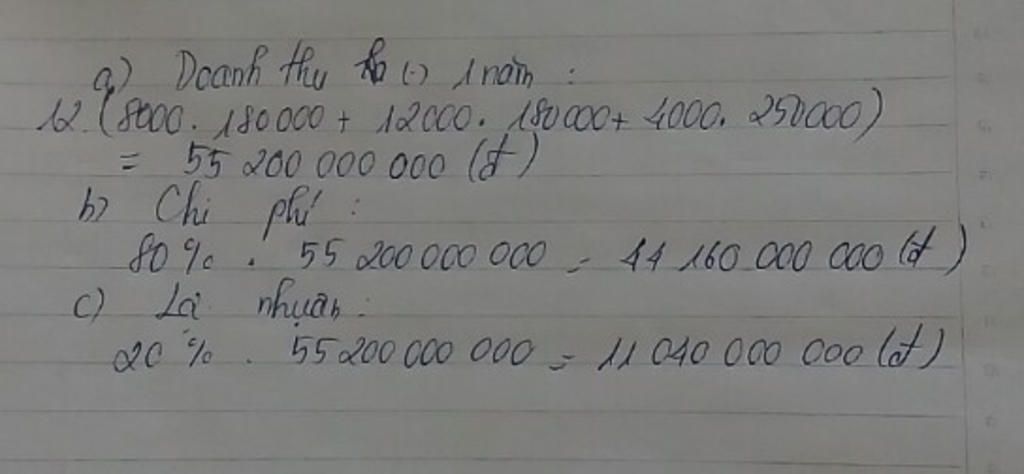 a) Doanh thu (.) 1 năm :
12. (8000. 180000 + 12000. 180000 + 4000. 250000)
= 55 200 000 000 (đ)
b) Chi phí :
80 % . 55 200 000 000 = 44 160 000 000 (đ)
c) Là nhuận :
20 % . 55 200 000 000 = 11 040 000 000 (đ)